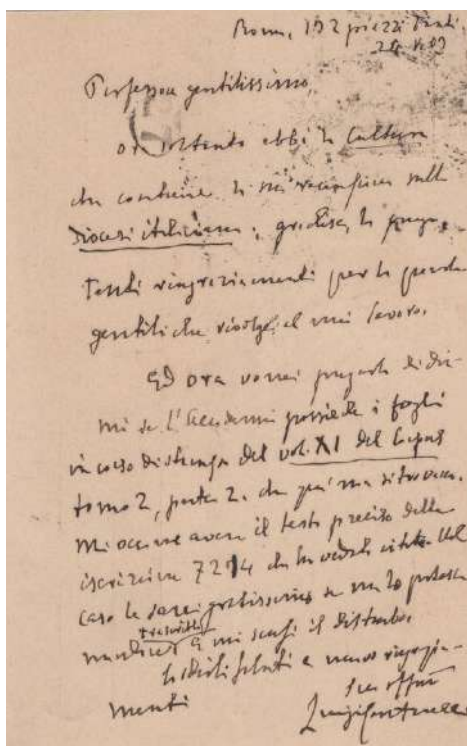 Roma, 102 piazza
Professore gentilissimo,
or soltanto ebbi la Cultura
che contiene la sua recensione sulla
diocesi italiciana; gradisca, la prego,
tanti ringraziamenti per le parole
gentili che rivolge al mio lavoro.
Ed ora vorrei pregarla di dir-
mi se l'Accademia possiede i fogli
in corso di stampa del vol. XI del Corpus
tomo 2, parte 2. che
Mi occorre avere il testo preciso della
iscrizione 7214 che ho veduto citata. Nel
caso le sarei gratissimo se me lo potesse
trascritto
e mi scusi il disturbo.
Cordiali saluti e nuovi ringrazia-
menti
Suo
Luigi